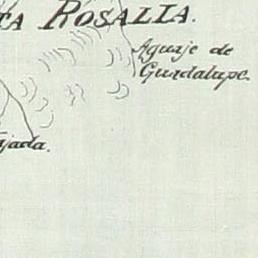 TA ROSALIA.
Aguaje de
Guadalupe.
jada.